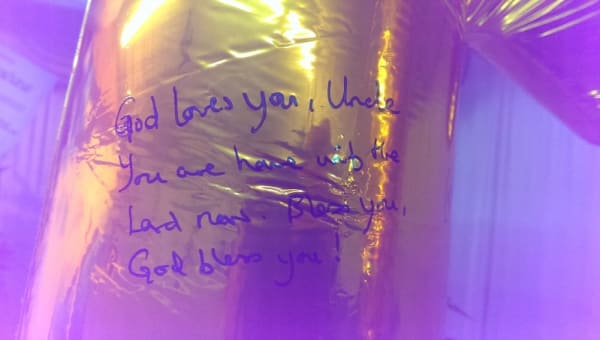 God loves you, Uncle
You are home with the
Lord now. Bless you,
God bless you!